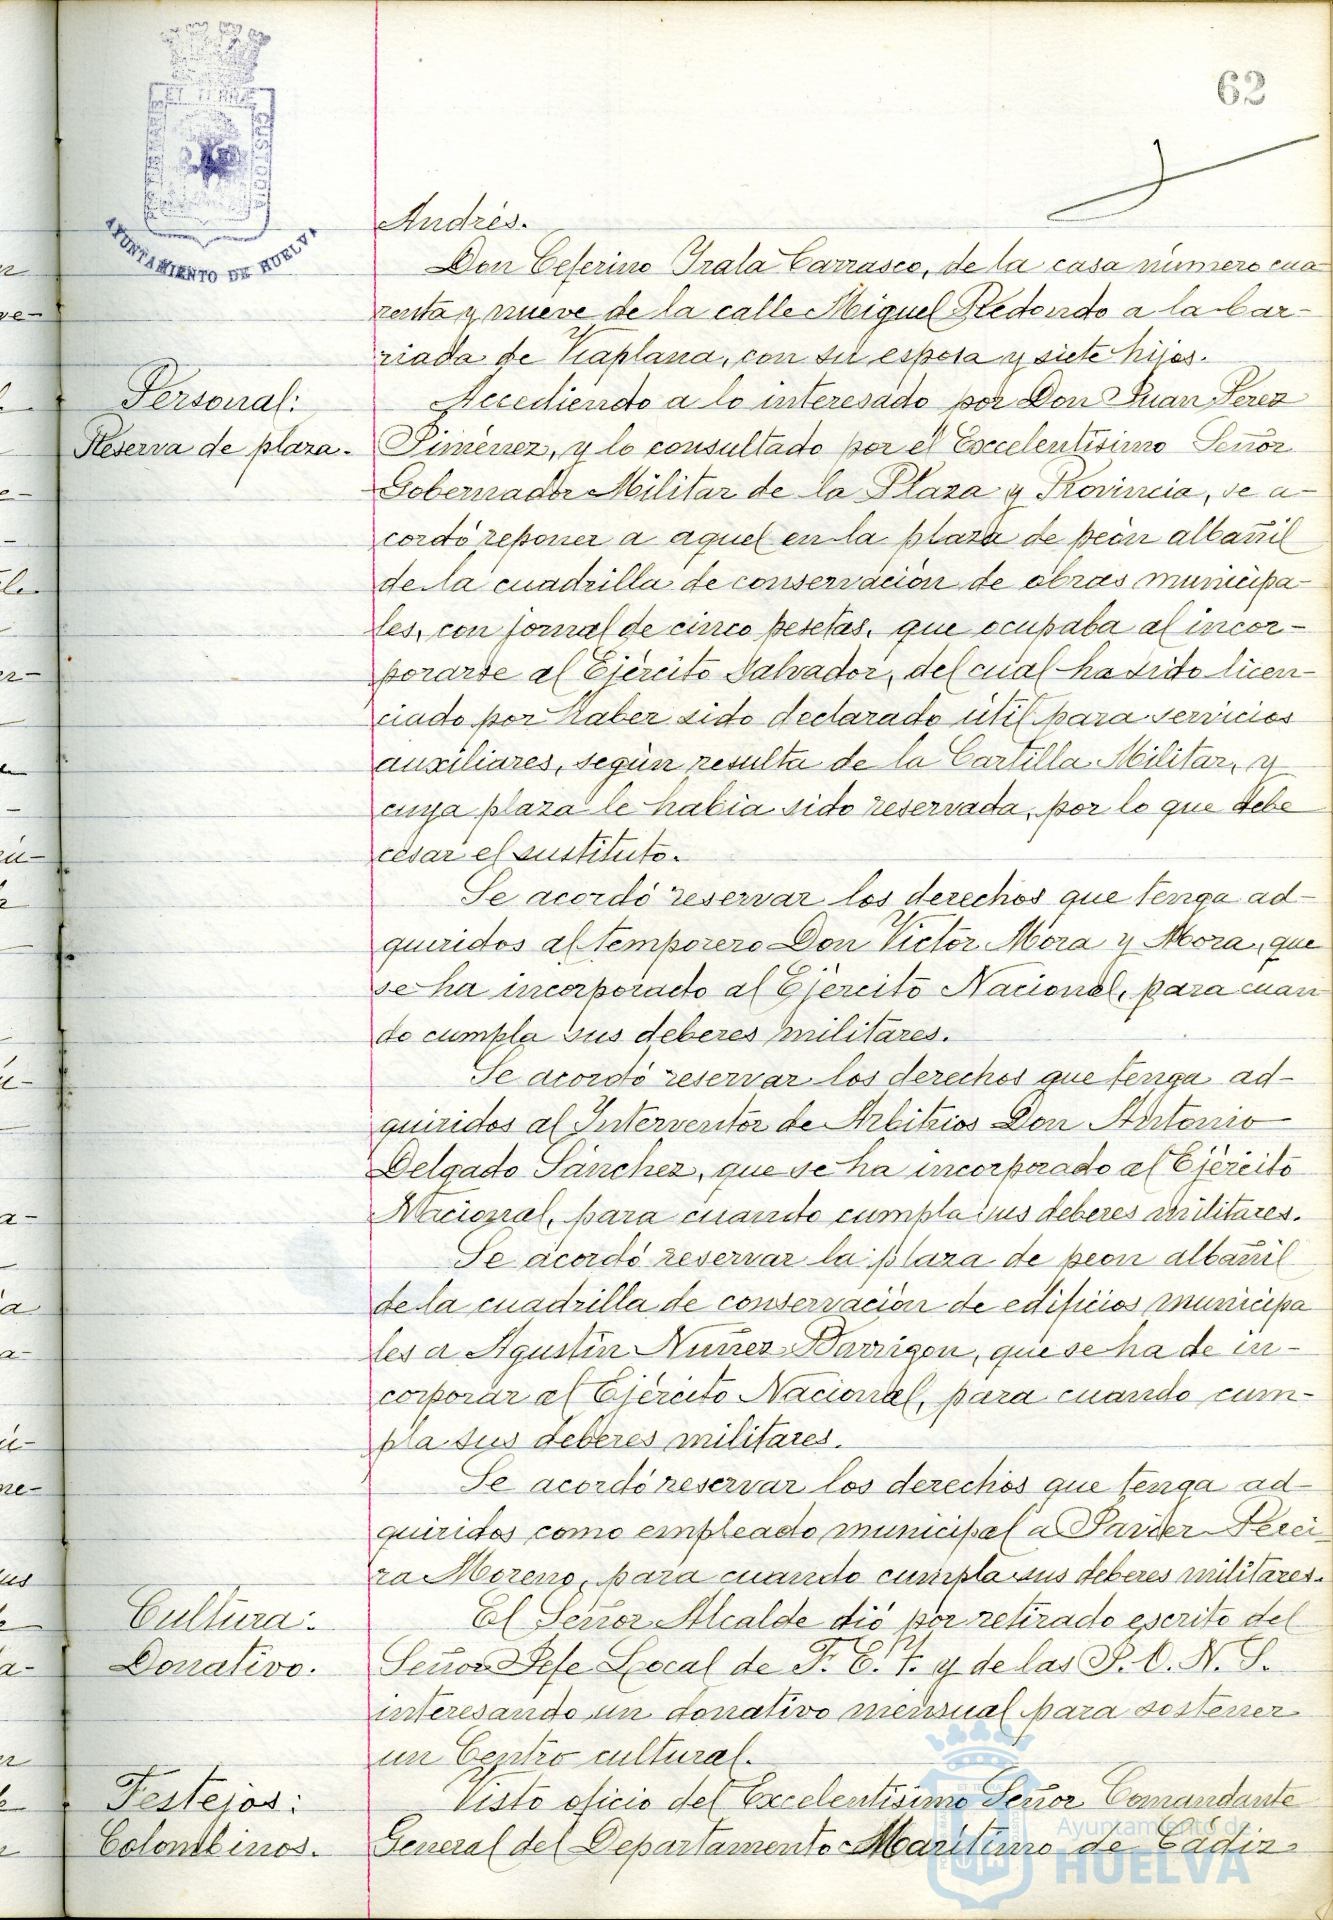 62
ET TERRÆ
PORTUS MARIS
CUSTODIA
AYUNTAMIENTO DE HUELVA
Andrés.
Don Ceferino Yrala Carrasco, de la casa número cua-
renta y nueve de la calle Miguel Redondo a la bar-
riada de Viaplana, con su esposa y siete hijos.
Personal:
Reserva de plaza.
Accediendo a lo interesado por Don Juan Perez
Jiménez, y lo consultado por el Excelentísimo Señor
Gobernador Militar de la Plaza y Provincia, se a-
cordó reponer a aquel en la plaza de peón albañil
de la cuadrilla de conservación de obras municipa-
les, con jornal de cinco pesetas, que ocupaba al incor-
porarse al Ejército Salvador, del cual ha sido licen-
ciado por haber sido declarado útil para servicios
auxiliares, según resulta de la Cartilla Militar, y
cuya plaza le había sido reservada, por lo que debe
cesar el sustituto.
Se acordó reservar los derechos que tenga ad-
quiridos al temporero Don Victor Mora y Mora, que
se ha incorporado al Ejército Nacional, para cuan
do cumpla sus deberes militares.
Se acordó reservar los derechos que tenga ad-
quiridos al Ynterventor de Arbitrios Don Antonio
Delgado Sánchez, que se ha incorporado al Ejército
Nacional, para cuando cumpla sus deberes militares.
Se acordó reservar la plaza de peon albañil
de la cuadrilla de conservación de edificios municipa
les a Agustín Nuñez Barrigon, que se ha de in-
corporar al Ejército Nacional, para cuando cum-
pla sus deberes militares.
Se acordó reservar los derechos que tenga ad-
quiridos como empleado municipal a Javier Perei
ra Moreno, para cuando cumpla sus deberes militares.
Cultura:
Donativo.
El Señor Alcalde dió por retirado escrito del
Señor Jefe Local de F. E. T. y de las J. O. N. S.
interesando un donativo mensual para sostener
un Centro cultural.
Festejos:
Colombinos.
Visto oficio del Excelentísimo Señor Comandante
General del Departamento Marítimo de Cádiz
Ayuntamiento de
HUELVA